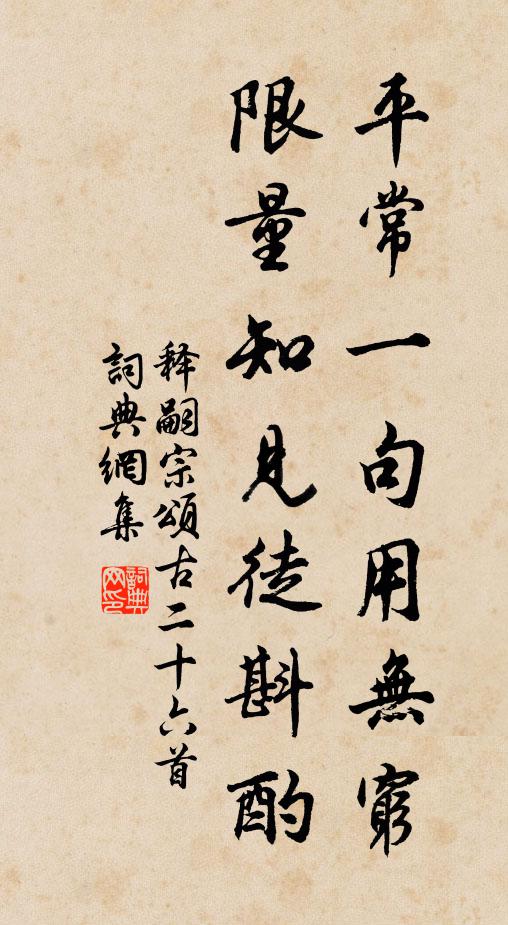 平常一句用無窮
限量知見徒斟酌
释嗣宗頌古二十六首
詞典網集
詞典网印